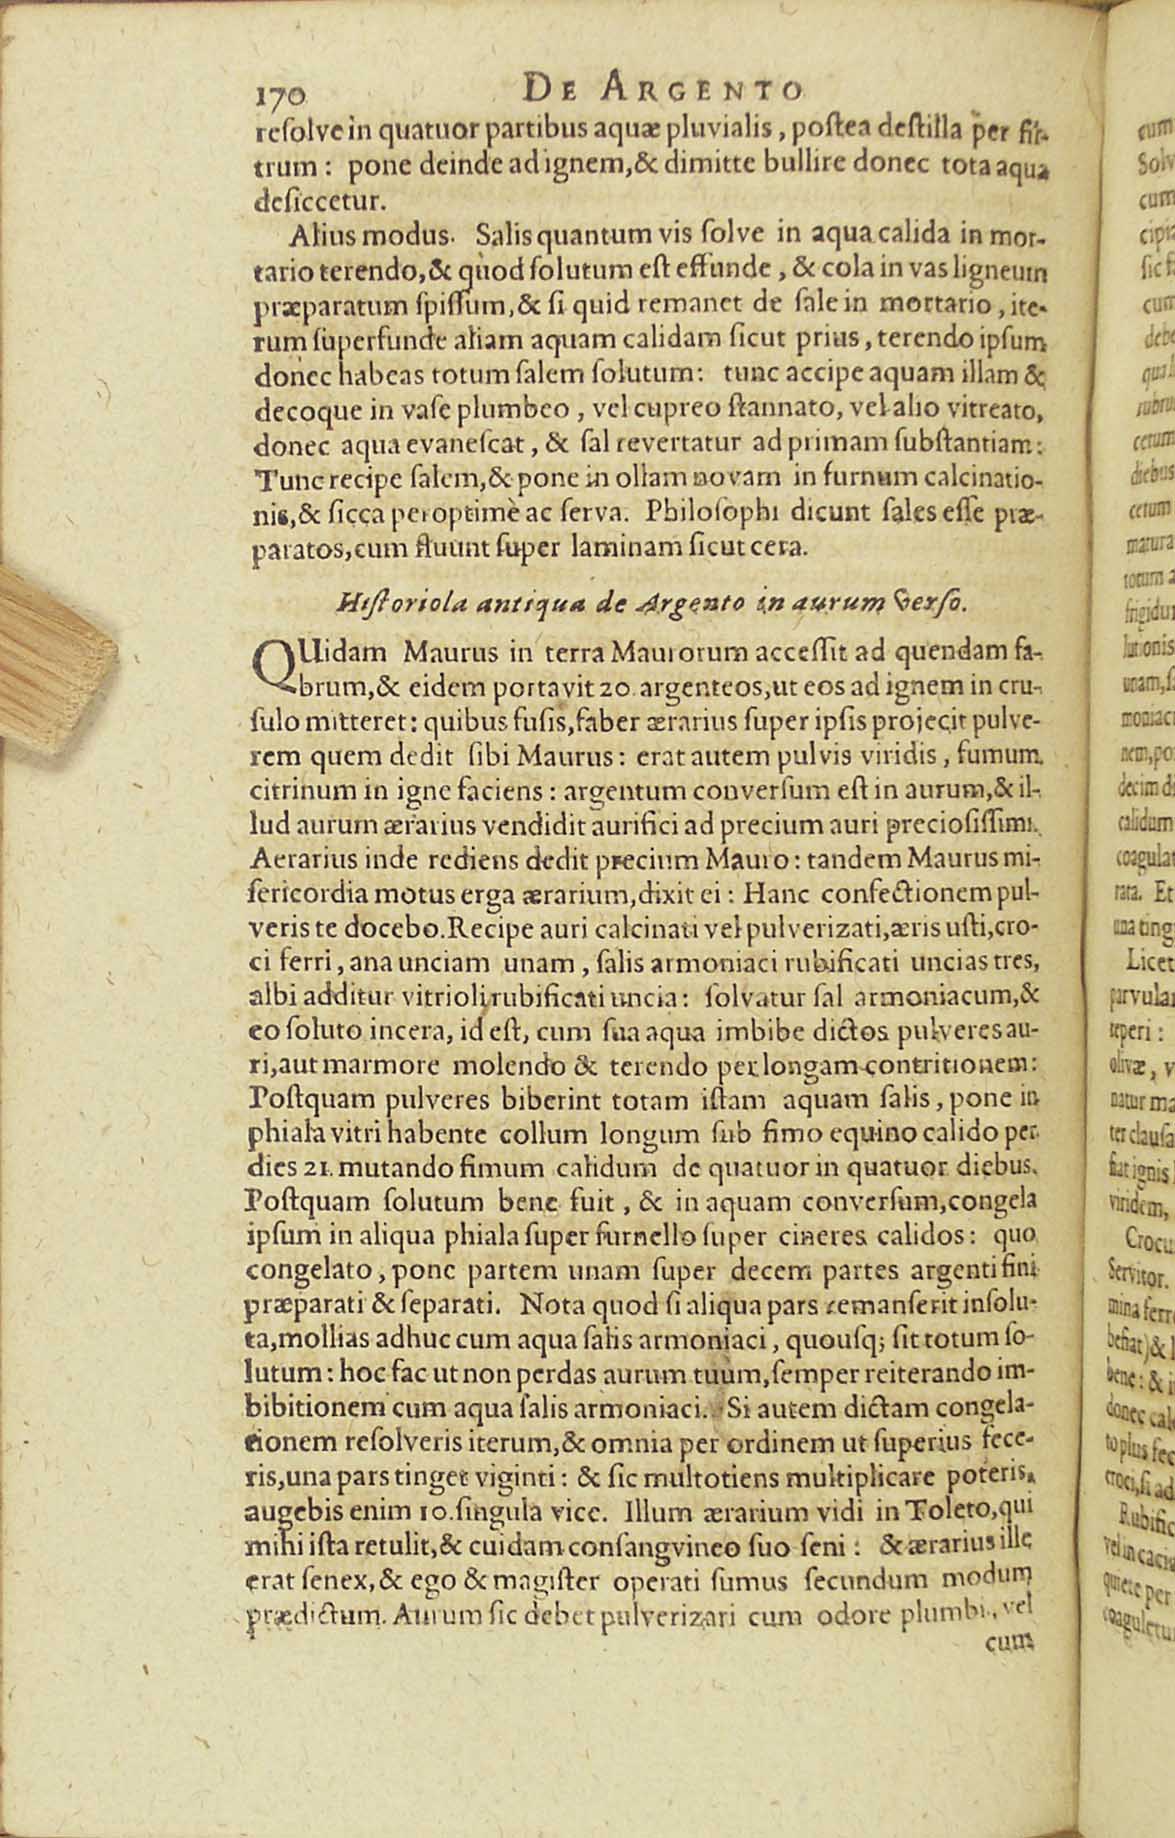 170 DE ARGENTO
reſolve in quatuor partibus aquæ pluvialis, poſtea deſtilla per fil-
trum: pone deinde ad ignem, & dimitte bullire donec tota aqua
deſiccetur.
Alius modus. Salis quantum vis ſolve in aqua calida in mor-
tario terendo, & quod ſolutum eſt effunde, & cola in vas ligneum
præparatum ſpiſſum, & ſi quid remanet de ſale in mortario, ite-
rum ſuperfunde aliam aquam calidam ſicut prius, terendo ipſum
donec habeas totum ſalem ſolutum: tunc accipe aquam illam &
decoque in vaſe plumbeo, vel cupreo ſtannato, vel alio vitreato,
donec aqua evaneſcat, & ſal revertatur ad primam ſubſtantiam:
Tunc recipe ſalem, & pone in ollam novam in furnum calcinatio-
nis, & ſicca peroptimè ac ſerva. Philoſophi dicunt ſales eſſe præ-
paratos, cum fluunt ſuper laminam ſicut cera.
Hiſtoriola antiqua de Argento in aurum verſo.
QUidam Maurus in terra Maurorum acceſſit ad quendam fa-
brum, & eidem portavit 20. argenteos, ut eos ad ignem in cru-
ſulo mitteret: quibus fuſis, faber ærarius ſuper ipſis projecit pulve-
rem quem dedit ſibi Maurus: erat autem pulvis viridis, fumum
citrinum in igne faciens: argentum converſum eſt in aurum, & il-
lud aurum ærarius vendidit aurifici ad precium auri precioſiſſimi.
Aerarius inde rediens dedit precium Mauro: tandem Maurus mi-
ſericordia motus erga ærarium, dixit ei: Hanc confectionem pul-
veris te docebo. Recipe auri calcinati vel pulverizati, æris uſti, cro-
ci ferri, ana unciam unam, ſalis armoniaci rubificati uncias tres,
albi additur vitrioli rubificati uncia: ſolvatur ſal armoniacum, &
eo ſoluto incera, id eſt, cum ſua aqua imbibe dictos pulveres au-
ri, aut marmore molendo & terendo per longam contritionem:
Poſtquam pulveres biberint totam iſtam aquam ſalis, pone in
phiala vitri habente collum longum ſub fimo equino calido per
dies 21. mutando fimum calidum de quatuor in quatuor diebus.
Poſtquam ſolutum bene fuit, & in aquam converſum, congela
ipſum in aliqua phiala ſuper furnello ſuper cineres calidos: quo
congelato, pone partem unam ſuper decem partes argenti fini
præparati & ſeparati. Nota quod ſi aliqua pars remanſerit inſolu-
ta, mollias adhuc cum aqua ſalis armoniaci, quouſq; ſit totum ſo-
lutum: hoc fac ut non perdas aurum tuum, ſemper reiterando im-
bibitionem cum aqua ſalis armoniaci. Si autem dictam congela-
tionem reſolveris iterum, & omnia per ordinem ut ſuperius fece-
ris, una pars tinget viginti: & ſic multotiens multiplicare poteris,
augebis enim 10. ſingula vice. Illum ærarium vidi in Toleto, qui
mihi iſta retulit, & cuidam conſangvineo ſuo ſeni: & ærarius ille
erat ſenex, & ego & magiſter operati ſumus ſecundum modum
prædictum. Aurum ſic debet pulverizari cum odore plumbi, vel
cum
cum
Solv
cum
cum
diebus
cetum
totum a
lutionis
unam, ſ
moniaci
nem, po
decim di
calidum
coagulat
rata. Et
una ting
Licet
parvulam
reperi:
olivæ, v
natur ma
ter clauſa
fiat ignis
viridem,
Crocu
Servitor.
mina ferr
befiat) & l
bene: & i
donec cal
to plus fec
croci, ſi ad
Rubific
vel in cacia
quiete per
coaguletur